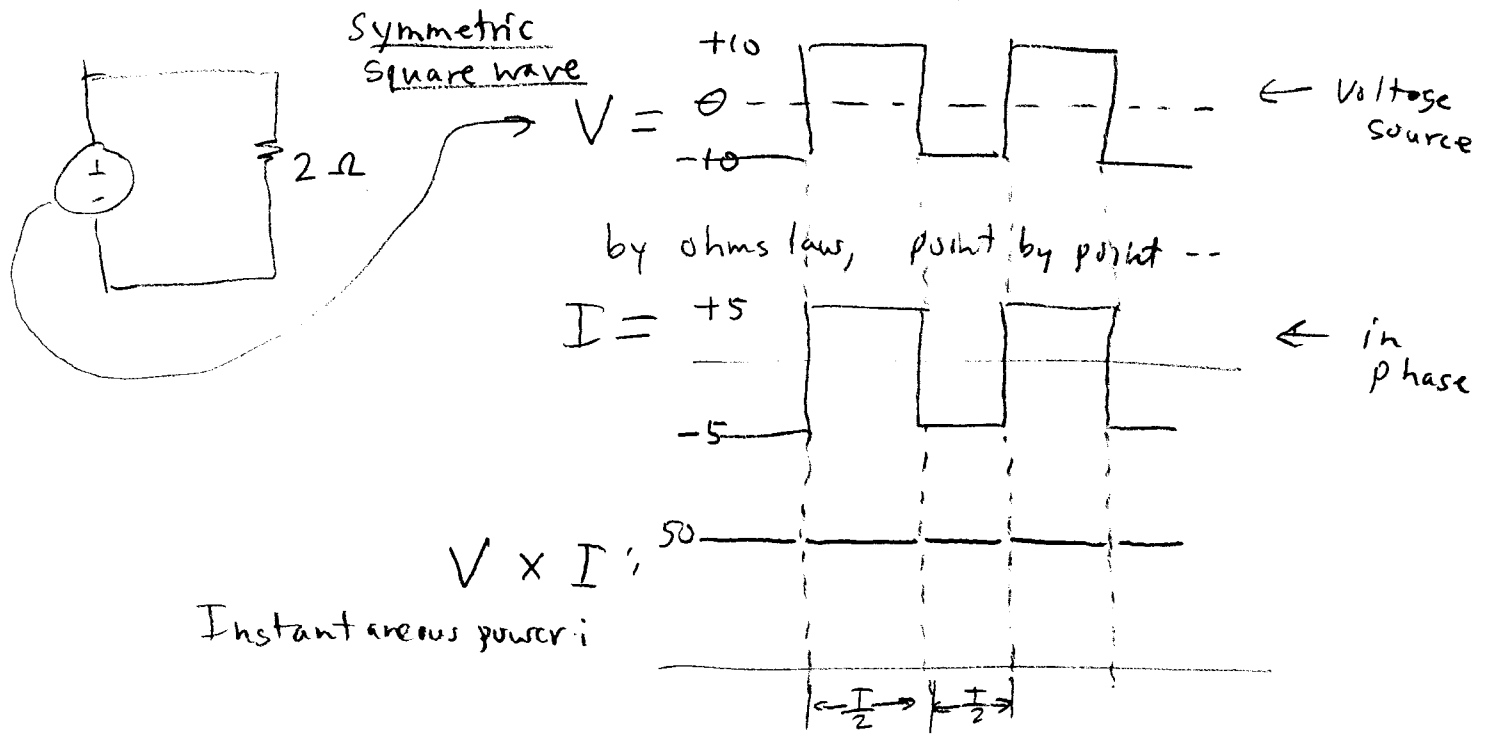 Symmetric
Square wave
+
-
2 Ω
V =
+10
0
-10
← Voltage
source
by ohms law, point by point --
I =
+5
-5
← in
phase
V x I:
50
Instantaneous power:
T/2
T/2